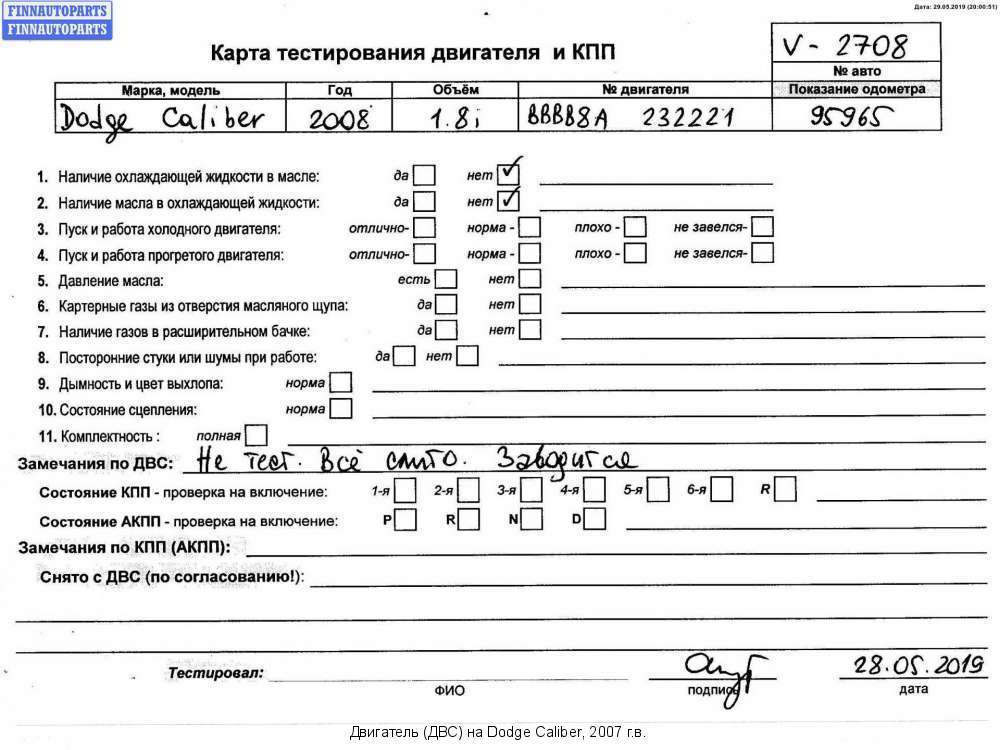 Дата: 29.05.2019 (20:00:51)
FINNAUTOPARTS
FINNAUTOPARTS
Карта тестирования двигателя и КПП
V - 2708
№ авто
Марка, модель Год Объём № двигателя Показание одометра
Dodge Caliber 2008 1.8i BBBB8A 232221 95965
1. Наличие охлаждающей жидкости в масле: да нет ✓
2. Наличие масла в охлаждающей жидкости: да нет ✓
3. Пуск и работа холодного двигателя: отлично- норма - плохо - не завелся-
4. Пуск и работа прогретого двигателя: отлично- норма - плохо - не завелся-
5. Давление масла: есть нет
6. Картерные газы из отверстия масляного щупа: да нет
7. Наличие газов в расширительном бачке: да нет
8. Посторонние стуки или шумы при работе: да нет
9. Дымность и цвет выхлопа: норма
10. Состояние сцепления: норма
11. Комплектность : полная
Замечания по ДВС: Не тест. Всё слито. Заводится
Состояние КПП - проверка на включение: 1-я 2-я 3-я 4-я 5-я 6-я R
Состояние АКПП - проверка на включение: P R N D
Замечания по КПП (АКПП):
Снято с ДВС (по согласованию!):
28.05.2019
Тестировал:
ФИО подпись дата
Двигатель (ДВС) на Dodge Caliber, 2007 г.в.